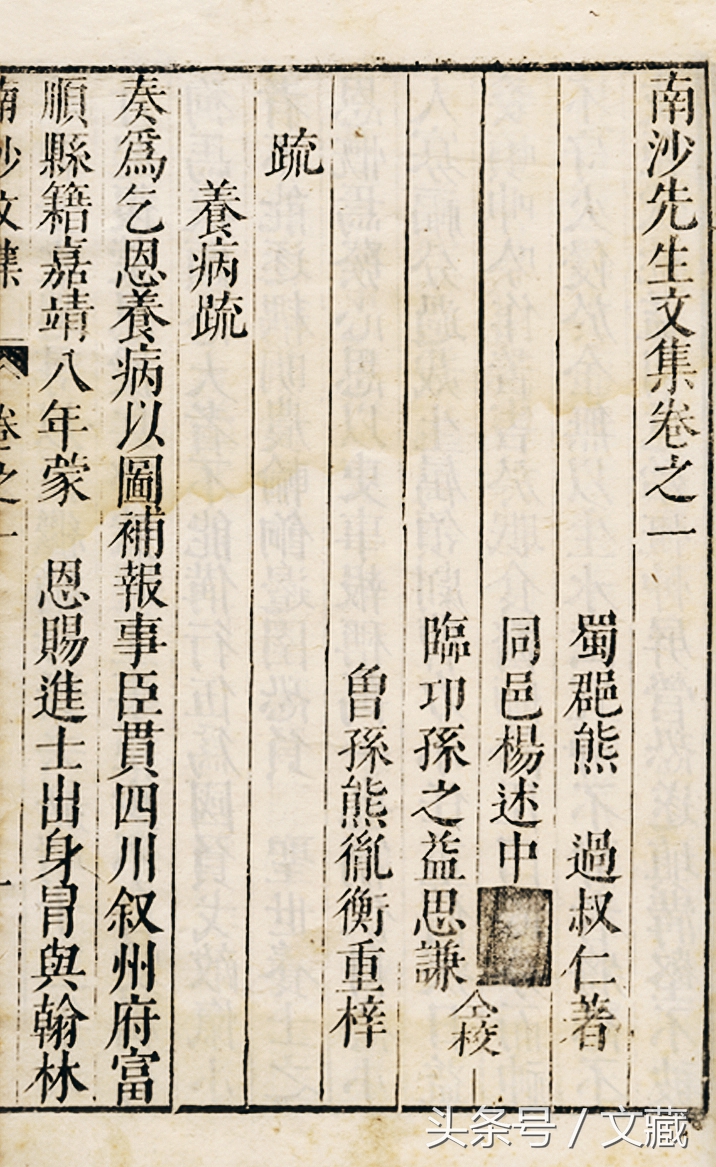 南沙先生文集卷之一
蜀郡熊 過叔仁著
同邑楊述中
臨邛孫之益思謙
仝校
曾孫熊胤衡重梓
疏
養病疏
奏為乞恩養病以圖補報事臣貫四川叙州府富
順縣籍嘉靖八年蒙 恩賜進士出身冒與翰林
南沙文集 卷之一 一
头条号 / 文藏